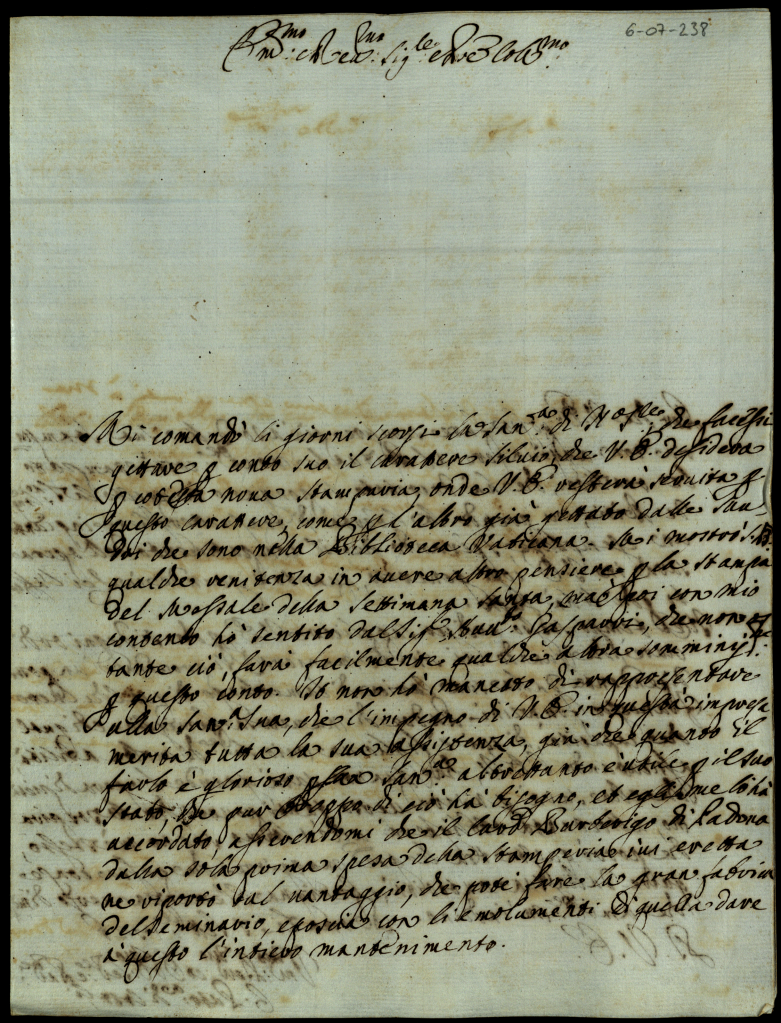 6-07-238
Em.mo e Rev.mo Sig.re e Pne Colls.mo
Mi comandò li giorni scorsi la San.tà di N.ro Sig.re, che facessi
gettare p conto suo il carattere silvio, che V. E. desidera
p cotesta nova stamparia, onde V. E. resterà servita p
questo carattere, come p l'altro già gettato dalle Ma-
doi che sono nella Biblioteca Vaticana. Mi mostrò
qualche renitenza in avere altro pensiere p la stampa
del Messale della settimana santa, ma poi con mio
contento hò sentito dal Sig.r Avv.o Gasparri, che non os
tante ciò, farà facilmente qualche altra somminis.ne
p questo conto. Io non hò mancato di rappresentare
alla San.tà Sua, che l'impegno di V. E. in questa impresa
merita tutta la sua assistenza, già che quanto il
farlo è glorioso p la San.tà altrettanto è utile p il suo
stato, che pur troppo di ciò hà bisogno, et egli me l'hà
accordato, asserendomi che il Card. Barbarigo di Padova
dalla sola prima spesa della stamperia ivi eretta
ne riportò tal vantaggio, che potè fare la gran fabrica
del Seminario, e poscia con li emolumenti di quella dare
à questo l'intiero mantenimento.